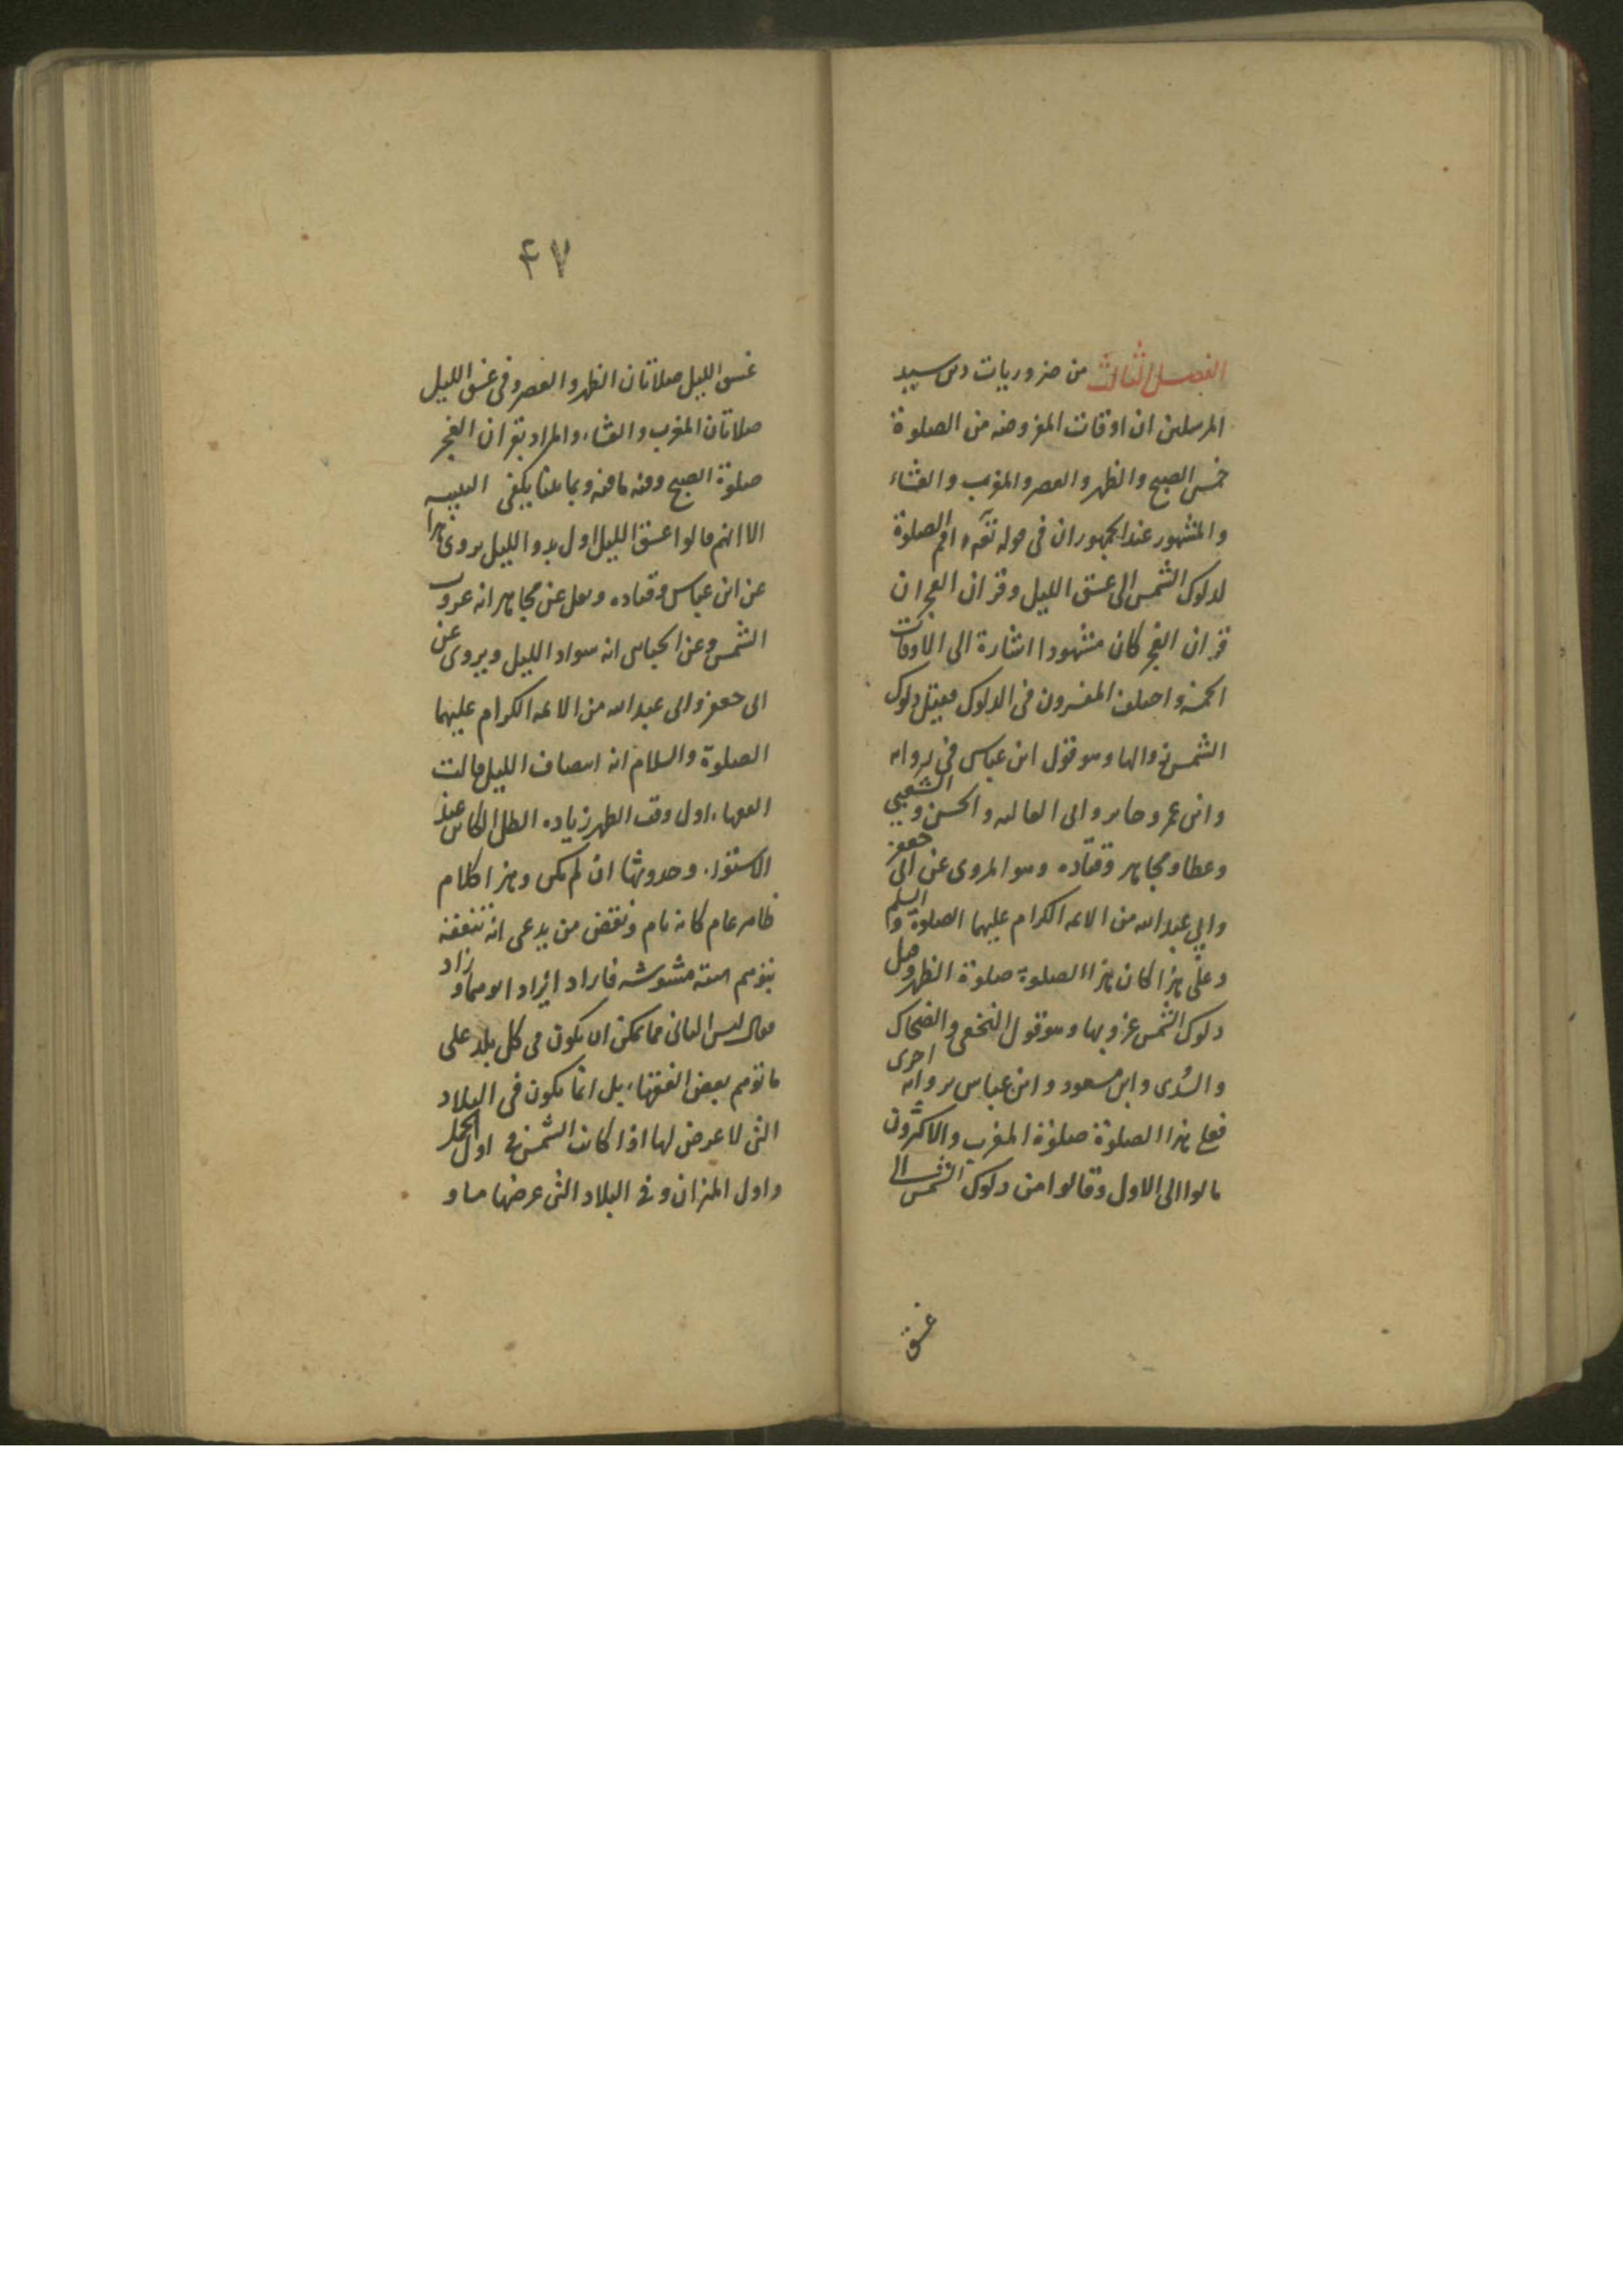 الفصل الثالث من ضروريات دين سيد
المرسلين ان اوقات المفروضه من الصلوة
خمس الصبح والظهر والعصر والمغرب والعشاء
والمشهور عند الجمهور ان فى قوله تعه اقم الصلوة
لدلوك الشمس الى غسق الليل وقران الفجر ان
قران الفجر كان مشهودا اشارة الى الاوقات
الخمسة واختلف المفسرون فى الدلوك فقيل دلوك
الشمس زوالها وهو قول ابن عباس فى روايه
وابن عمر وجابر وابى العاليه والحسن والشعبي
وعطا ومجاهد وقتاده وهو المروى عن ابى جعفر
وابي عبد الله من الائمه الكرام عليهما الصلوة والسلم
وعلى هذا كان هذا الصلوة صلوة الظهر وقيل
دلوك الشمس غروبها وهو قول النخعى والضحاك
والسدى وابن مسعود وابن عباس بروايه اخرى
فعلى هذا الصلوة صلوة المغرب والاكثرون
مالوا الى الاول وقالوا من دلوك الشمس الى
غسق
۴۷
غسق الليل صلاتان الظهر والعصر وفى غسق الليل
صلاتان المغرب والعشاء والمراد بقران الفجر
صلوة الصبح وفيه ما فيه وبما نقلنا يكفى اللبيب
الا انهم قالوا غسق الليل اول بدو الليل يروى هذا
عن ابن عباس وقتاده ونقل عن مجاهد انه غروب
الشمس وعن الجبائى انه سواد الليل ويروى عن
ابى جعفر وابى عبد الله من الائمه الكرام عليهما
الصلوة والسلام انه انتصاف الليل قالت
الفقهاء اول وقت الظهر زياده الظل الكائن عند
الاستواء وحدوثها ان لم يكن وهذا كلام
ظاهر عام كانه تام ونقض من يدعى انه تفقه
بتوهم مشوشه فاراد ايراد وزاد
فقال ليس الثانى مما يمكن ان يكون فى كل بلد على
ما توهم بعض الفقهاء بل انما يكون فى البلاد
التى لا عرض لها اذا كانت الشمس فى اول الحمل
واول الميزان وفى البلاد التى عرضها مساو